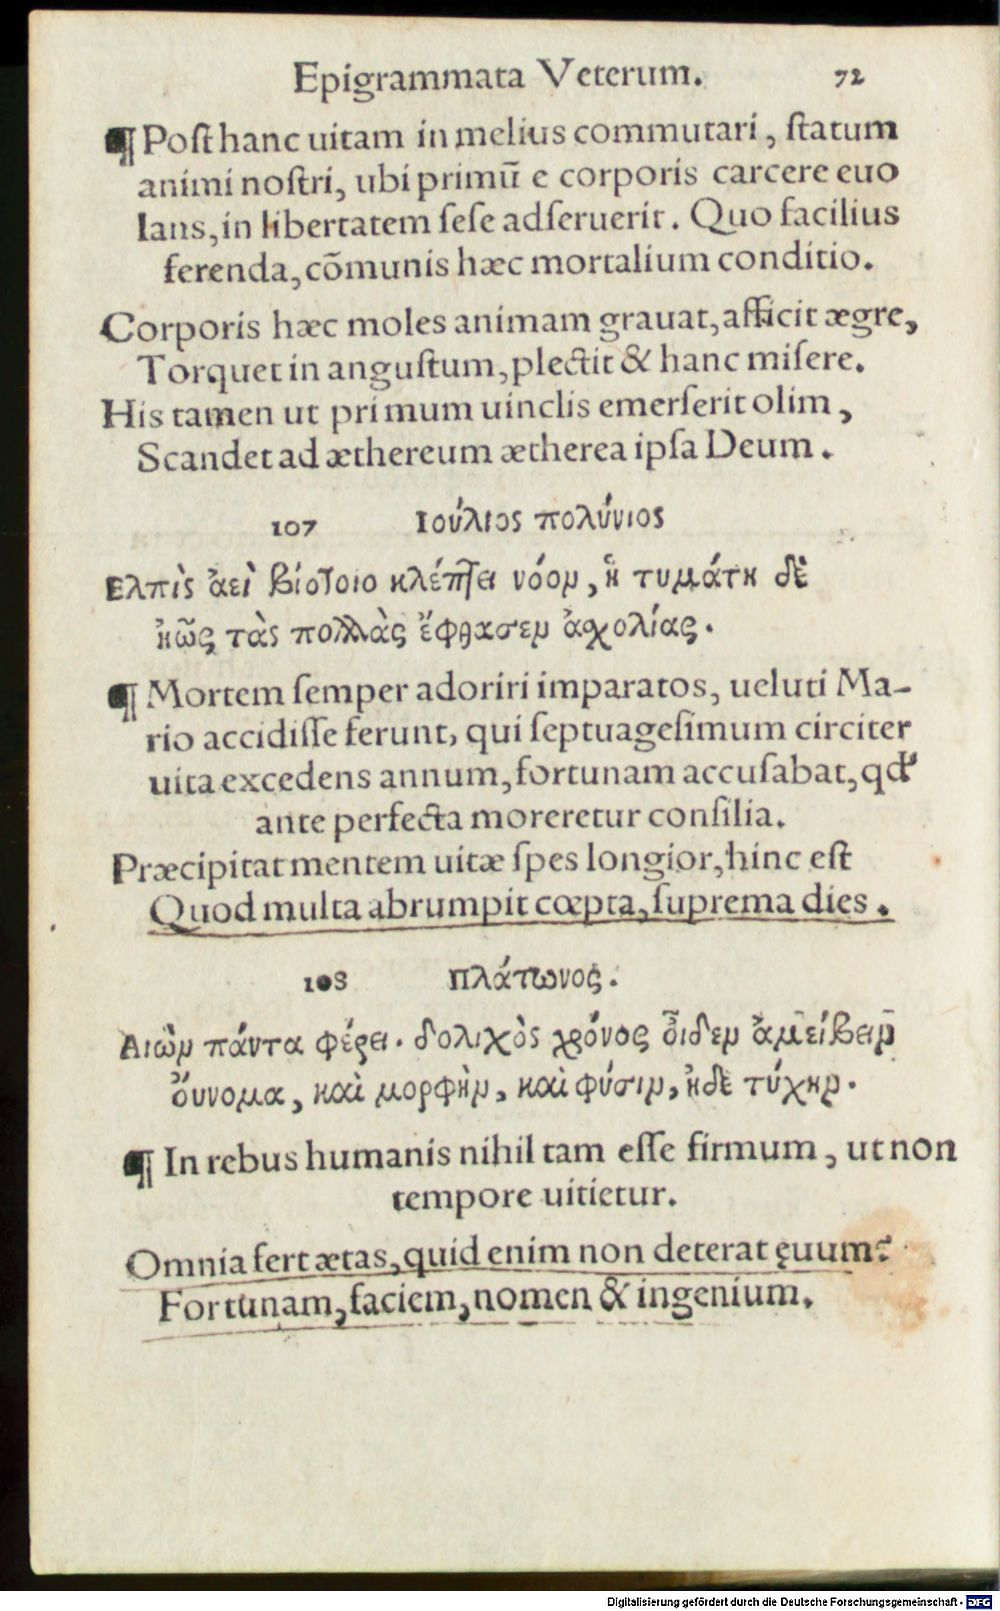 Epigrammata Veterum. 72
¶ Post hanc uitam in melius commutari, statum
animi nostri, ubi primū e corporis carcere euo
lans, in libertatem sese adseruerit. Quo facilius
ferenda, cōmunis hæc mortalium conditio.
Corporis hæc moles animam grauat, afficit ægre,
Torquet in angustum, plectit & hanc misere.
His tamen ut primum uinclis emerserit olim,
Scandet ad æthereum ætherea ipsa Deum.
107 Ιούλιος πολύνιος
Ελπὶς ἀεὶ βιότοιο κλέπτει νόον, ἡ τυμάτη δὲ
ἠῶς τὰς πολλὰς ἔφθασεν ἀχολίας.
¶ Mortem semper adoriri imparatos, ueluti Ma-
rio accidisse ferunt, qui septuagesimum circiter
uita excedens annum, fortunam accusabat, qđ
ante perfecta moreretur consilia.
Præcipitat mentem uitæ spes longior, hinc est
Quod multa abrumpit cœpta, suprema dies.
108 Πλάτωνος.
Αιὼν πάντα φέρει. δολιχὸς χρόνος οἶδεν ἀμείβειν
ὄυνομα, καὶ μορφὴν, καὶ φύσιν, ἠδὲ τύχην.
¶ In rebus humanis nihil tam esse firmum, ut non
tempore uitietur.
Omnia fert ætas, quid enim non deterat ęuum?
Fortunam, faciem, nomen & ingenium.
Digitalisierung gefördert durch die Deutsche Forschungsgemeinschaft - DFG